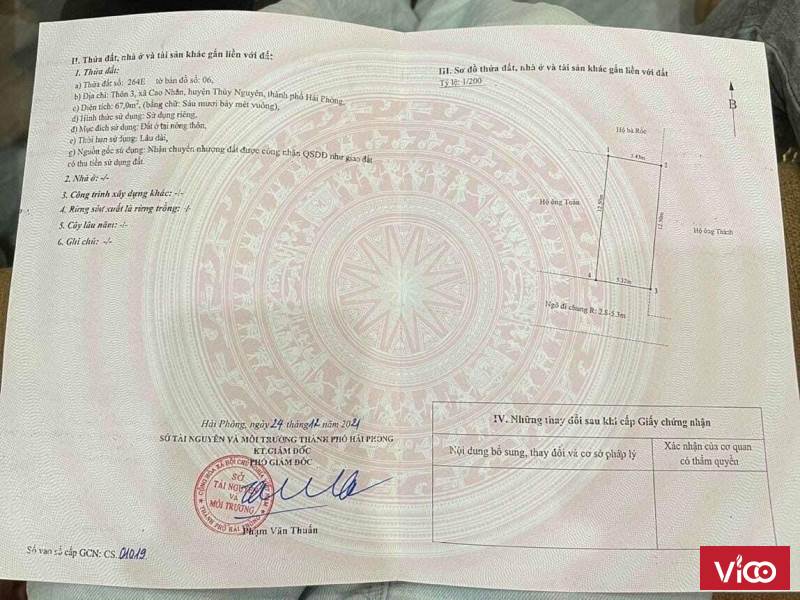 II. Thửa đất, nhà ở và tài sản khác gắn liền với đất:
1. Thửa đất:
a) Thửa đất số: 264E tờ bản đồ số: 06,
b) Địa chỉ: Thôn 3, xã Cao Nhân, huyện Thủy Nguyên, thành phố Hải Phòng,
c) Diện tích: 67,0m², (bằng chữ: Sáu mươi bảy mét vuông),
d) Hình thức sử dụng: Sử dụng riêng,
đ) Mục đích sử dụng: Đất ở tại nông thôn,
e) Thời hạn sử dụng: Lâu dài,
g) Nguồn gốc sử dụng: Nhận chuyển nhượng đất được công nhận QSDĐ như giao đất
có thu tiền sử dụng đất.
2. Nhà ở: -/-
3. Công trình xây dựng khác: -/-
4. Rừng sản xuất là rừng trồng: -/-
5. Cây lâu năm: -/-
6. Ghi chú: -/-
Hải Phòng, ngày 24 tháng 12 năm 2021
SỞ TÀI NGUYÊN VÀ MÔI TRƯỜNG THÀNH PHỐ HẢI PHÒNG
KT.GIÁM ĐỐC
PHÓ GIÁM ĐỐC
SỞ
TÀI NGUYÊN
VÀ
MÔI TRƯỜNG
THÀNH PHỐ HẢI PHÒNG
Phạm Văn Thuấn
Số vào sổ cấp GCN: CS. 01019
III. Sơ đồ thửa đất, nhà ở và tài sản khác gắn liền với đất
Tỷ lệ: 1/200
B
Hộ bà Rốc
1
5.43m
2
Hộ ông Toản
12.50m
12.50m
Hộ ông Thành
4
5.32m
3
Ngõ đi chung R: 2.8-5.3m
IV. Những thay đổi sau khi cấp Giấy chứng nhận
Nội dung bổ sung, thay đổi và cơ sở pháp lý
Xác nhận của cơ quan
có thẩm quyền
Vico